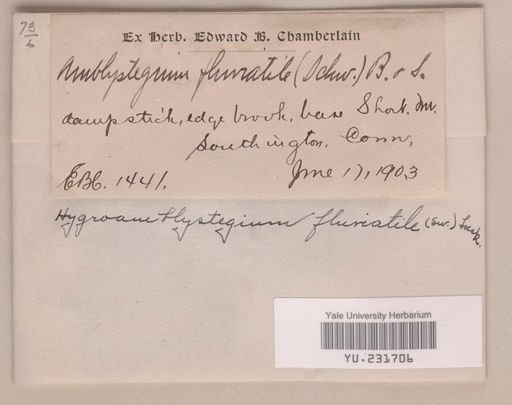 73
6
Ex Herb. Edward B. Chamberlain
Amblystegium fluviatile (Schw.) B. & S.
damp stick, edge brook, base Short. Mt.
Southington. Conn,
EBC. 1441. June 17, 1903
Hygroamblystegium fluviatile (Sw.)
Yale University Herbarium
YU.231706